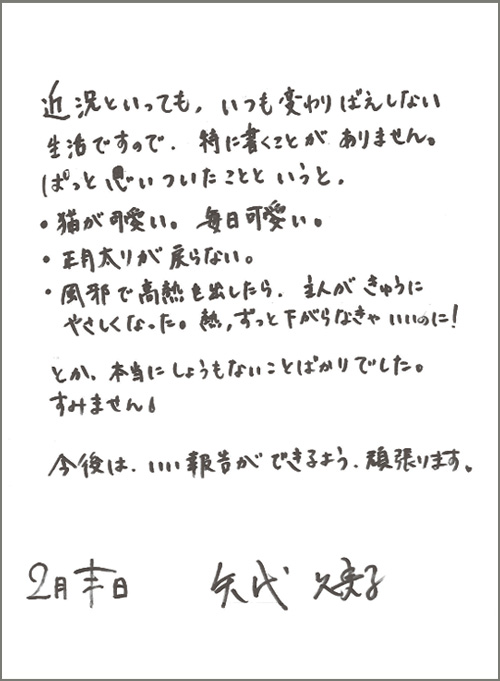 近況といっても、いつも変わりばえしない
生活ですので、特に書くことがありません。
ぱっと思いついたことというと、
・猫が可愛い。毎日可愛い。
・正月太りが戻らない。
・風邪で高熱を出したら、主人がきゅうに
やさしくなった。熱、ずっと下がらなきゃいいのに!
とか、本当にしょうもないことばかりでした。
すみません!
今後は、いい報告ができるよう、頑張ります。
2月末日 矢代 久美子